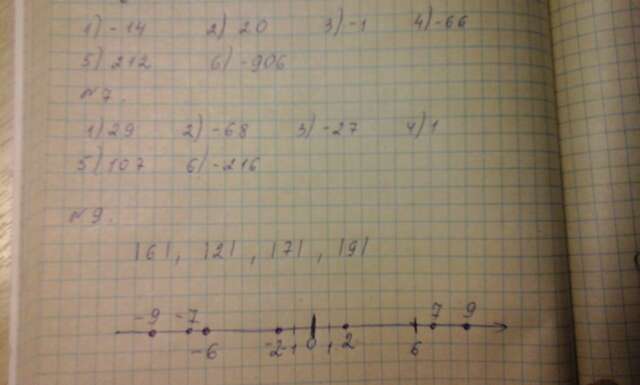 1) -14 2) 20 3) -1 4) -66
5) 212 6) -906
№7.
1) 29 2) -68 3) -27 4) 1
5) 107 6) -216
№9.
|6|, |2|, |7|, |9|
-9 -7 7 9
-6 -2 -1 0 1 2 6